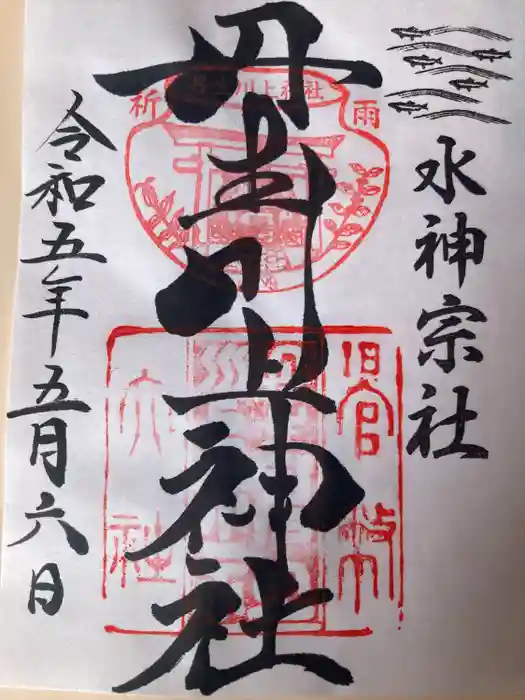 水神宗社
丹生川上神社
令和五年五月六日
丹生川上神社
祈
雨
旧官幣
大社